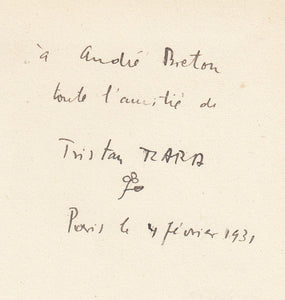 à André Breton
toute l'amitié de
Tristan TZARA
Paris le 4 février 1931